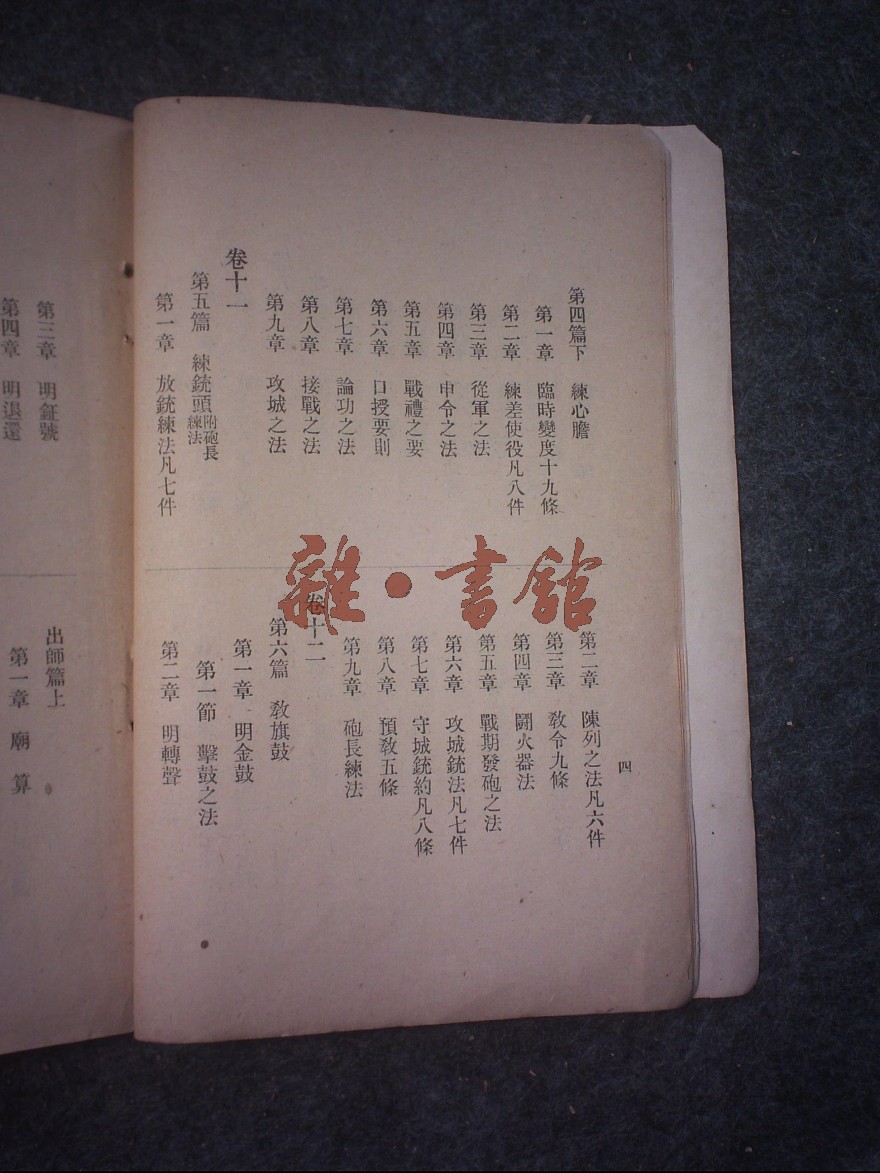 第四篇下 練心膽
第一章 臨時變度十九條
第二章 練差使役凡八件
第三章 從軍之法
第四章 申令之法
第五章 戰禮之要
第六章 口授要則
第七章 論功之法
第八章 接戰之法
第九章 攻城之法
卷十一
第五篇 練銃頭附砲長練法
第一章 放銃練法凡七件
第二章 陳列之法凡六件
第三章 敎令九條
第四章 鬪火器法
第五章 戰期發砲之法
第六章 攻城銃法凡七件
第七章 守城銃約凡八條
第八章 預敎五條
第九章 砲長練法
卷十二
第六篇 敎旗鼓
第一章 明金鼓
第一節 擊鼓之法
第二章 明轉聲
四
雜·書館
第三章 明鉦號
第四章 明退還
出師篇上
第一章 廟算